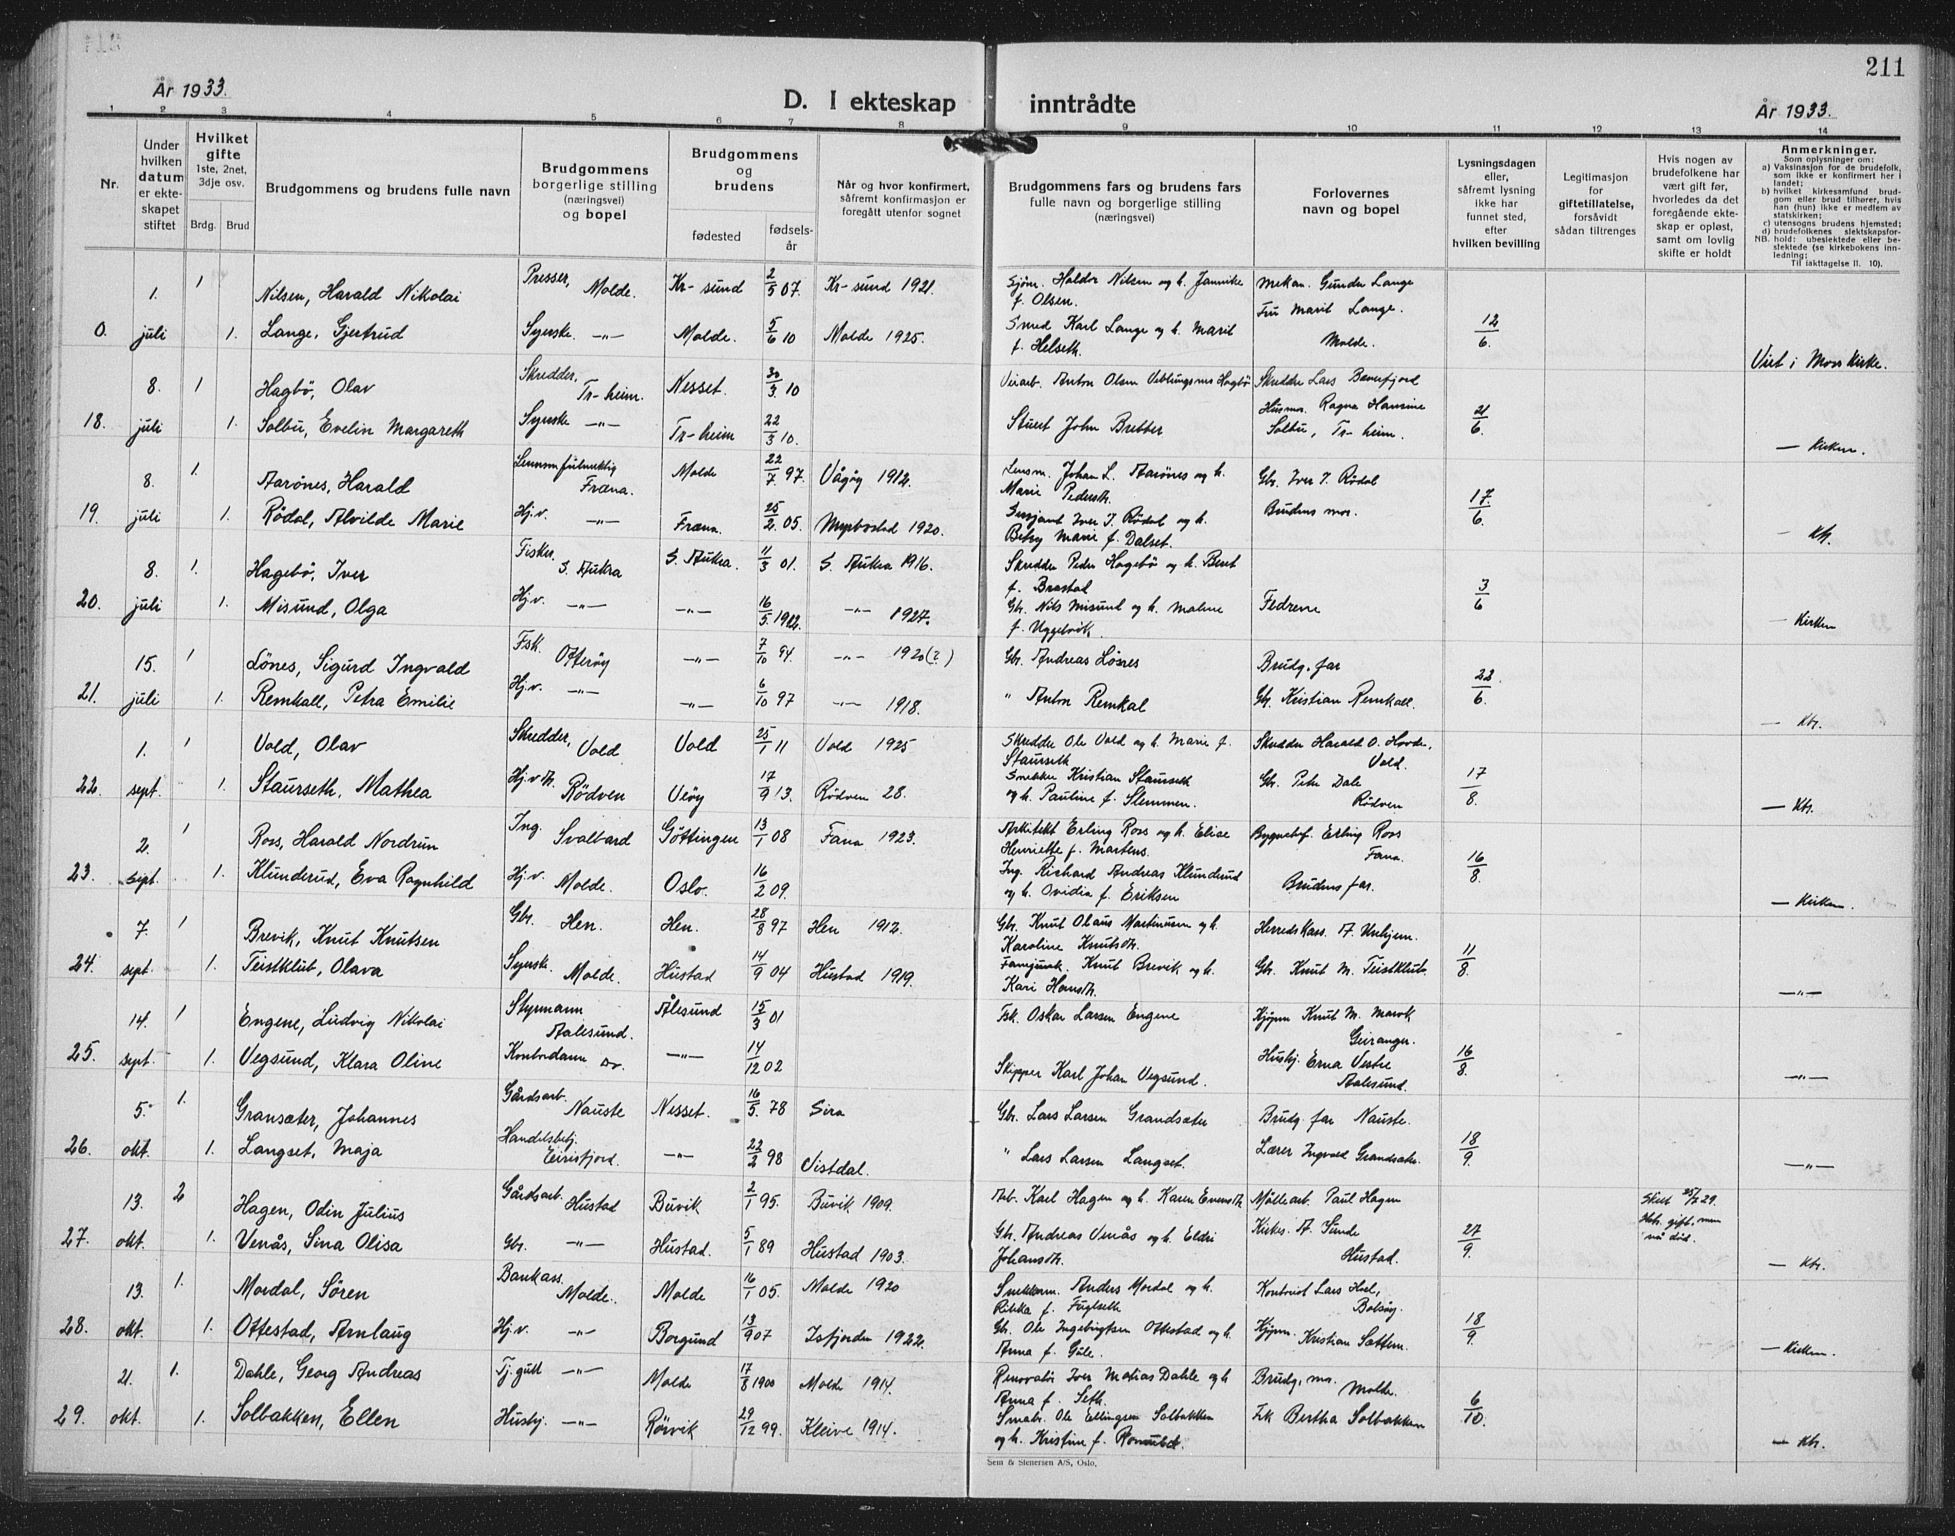 211
År 1933.
D. I ekteskap inntrådte
År 1933.
1 2 3 4 5 6 7 8 9 10 11 12 13 14
Nr.
Under hvilken datum er ekteskapet stiftet
Hvilket gifte 1ste, 2net, 3dje osv.
Brdg. Brud
Brudgommens og brudens fulle navn
Brudgommens borgerlige stilling (næringsvei) og bopel
Brudgommens og brudens
fødested
fødselsår
Når og hvor konfirmert, såfremt konfirmasjon er foregått utenfor sognet
Brudgommens fars og brudens fars fulle navn og borgerlige stilling (næringsvei)
Forlovernes navn og bopel
Lysningsdagen eller, såfremt lysning ikke har funnet sted, efter hvilken bevilling
Legitimasjon for giftetillatelse, forsåvidt sådan tiltrenges
Hvis nogen av brudefolkene har vært gift før, hvorledes da det foregående ekteskap er opløst, samt om lovlig skifte er holdt
Anmerkninger.
Som oplysninger om:
a) Vaksinasjon for de brudefolk, som ikke er konfirmert her i landet;
b) hvilket kirkesamfund brudgom eller brud tilhører, hvis han (hun) ikke er medlem av statskirken;
c) utensogns brudens hjemsted;
d) brudefolkenes slektskapsforhold: ubeslektede eller beslektede (se kirkebokens innledning;
NB. Til iakttagelse II. 10).
1. 1 Nilsen, Harald Nikolai Presser, Molde. Kr-sund 2/5 07. Kr-sund 1921. Sjøm. Haldor Nilsen og h. Jannike f. Olsen. Mekan. Gunder Lange
0. juli 1. Lange, Gjertrud Syerske -"- Molde. 5/6 10 Molde 1925. Smed Karl Lange og h. Marit f. Helseth. Fru Marit Lange. Molde. 12/6. Viet i Mors kirke.
8. 1 Hagbø, Olav Skredder, Tr-heim. Nesset. 30/3 10 Veiarb. Anton Olsen Hagbø Skredder Lars Bæverfjord
18. juli 1. Solbu, Evelin Margareth Syerske -"- Tr-heim 22/3 10. John Bretter Husmor. Ragna Hansine Solbu, Tr-heim. 21/6. - Kirken.
8. 1. Aarönes, Harald Lensm.fullmektig Fræna. Molde 22/7 97. Vågøy 1912. Lensm. Johan L. Aarönes og h. Marie Pedersdt. Gbr. Iver I. Rödal
19. juli 1. Rödal, Alvilde Marie Hj.v. -"- Fræna 25/2 05. Myrbostad 1920. Iver I. Rödal og h. Betsy Marie f. Dalset. Brudens mor. 17/6. - Kbr.
8. 1. Hagebö, Iver Fisker. S. Aukra S. Aukra. 11/3 01. S. Aukra 1916. Skredder Peder Hagebö og h. Beret f. Brastad
20. juli 1. Misund, Olga Hj.v. -"- -"- 16/5. 1912. -"- 1927. Gbr. Nils Misund og h. Malene f. Uggelvik. Fedrene 3/6 - Kirken
15. 1 Lönes, Sigurd Ingvald Fsk. Otteröy -"- 7/10 94 -"- 1920(?) Gbr. Andreas Lösnes Brudg. far
21. juli 1. Remkall, Petra Emilie Hj.v. -"- -"- 6/10 97 -"- 1918. " Anton Remkal Gbr. Kristian Remkall. 22/6. - Kbr.
1. 1 Vold, Olav Skredder, Vold. Vold 25/1 11 Vold 1925 Skredder Ole Vold og h. Marie f. Staurseth Skredder Harald O. Hovde, Vold.
22. sept. 1. Staurseth, Mathea Hj.v.dt. Rödven Veöy 17/9 13. Rödven 28. Snekker Kristian Staurseth og h. Pauline f. Slemmen. Gbr. Peter Dale Rödven 17/8. - Kbr.
2. 1 Roos, Harald Nordrun Ing. Svalbard Göttingen 13/1 08 Fana 1923. Arkitekt Erling Roos og h. Elise Henriette f. Martens. Erling Roos Fana.
23. sept. 1. Klunderud, Eva Ragnhild Hj.v. Molde. Oslo. 16/2 09. Ing. Richard Andreas Klunderud og h. Ovidia f. Eriksen Brudens far. 16/8. - Kirken.
7. 1 Brevik, Knut Knutsen Gbr. Hen. Hen. 28/8 97 Hen 1912. Gbr. Knut Olaus Martinusen og h. Karoline Knutsdt. Herredskass. A. Unhjem.
24. sept. 1. Teistklub, Olava Syersk. Molde. Hustad 14/9 04 Hustad 1919. Knut Brevik og h. Kari Hansdt. Gbr. Knut M. Teistklub. 11/8. -"-
14. 1 Engene, Ludvig Nikolai Styrmann Aalesund. Ålesund 15/3 01 Fsk. Oskar Larsen Engene Kjøpm Knut M. Merok Geiranger.
25. sept. 1. Vegsund, Klara Oline Kontordame -"- 14/12 02 Skipper Karl Johan Vegsund. Hushj. Erna Vestre Aalesund. 16/8. -"-
5. 1. Gransæter, Johannes Gårdsarb. Nauste Nesset. 16/5. 78 Sira Gbr. Lars Larsen Grandsæter Brudg. far Nauste.
26. okt. 1. Langset, Maja Handelsbetj. Eirisfjord. -"- 22/2 98 Vistdal. " Lars Larsen Langset. Lærer Ingvald Grandsæter. 18/9. -"-
13. 2 Hagen, Odin Julius Gårdsarb. Hustad Buvik 2/1 95. Buvik 1909. Arb. Karl Hagen og h. Karen Evensdt Möllearb. Paul Hagen
27. okt. 1. Venås, Sina Olisa Gbr. -"- Hustad. 5/1 89 Hustad 1903. Gbr. Andreas Venås og h. Eldri Johansdt. Kirkes. A. Sunde Hustad. 27/9. - Kbr.
13. 1. Mordal, Sören Bankass. Molde. Molde 16/1 05. Molde 1920 Snekkerm. Anders Mordal og h. Rikka f. Fuglseth Kontorist Lars Hoel, Bolsöy.
28. okt. 1. Ottestad, Arnlaug Hj.v. -"- Borgund 13/9 07 Isfjorden 1922. Gbr. Ole Ingebrigtsen Ottestad og h. Anna f. Gule. Kjøpm. Kristian Sættem. 18/9. - Kirken.
21. 1. Dahle, Georg Andreas Tj.gutt -"- Molde 17/8 1900 Molde 1914. Iver Matias Dahle og h Anna f. Seth. Brudg. mor. Molde.
29. okt. 1. Solbakken, Ellen Hushj. -"- Rörvik 29/12 99. Kleive 1914. Ole Ellingsen Solbakken og h. Kristine f. Frk Bertha Solbakken 6/10. - Kbr.
Sem & Stenersen A/S, Oslo.